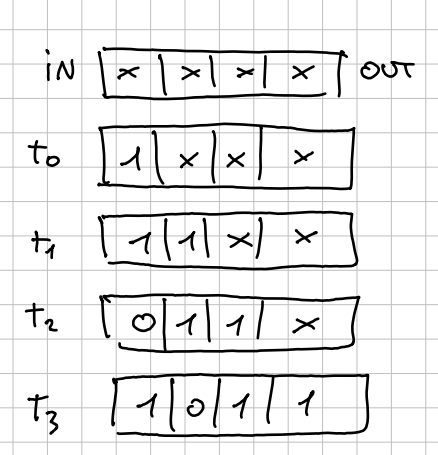 IN x | x | x | x OUT
t0 1 | x | x | x
t1 1 | 1 | x | x
t2 0 | 1 | 1 | x
t3 1 | 0 | 1 | 1